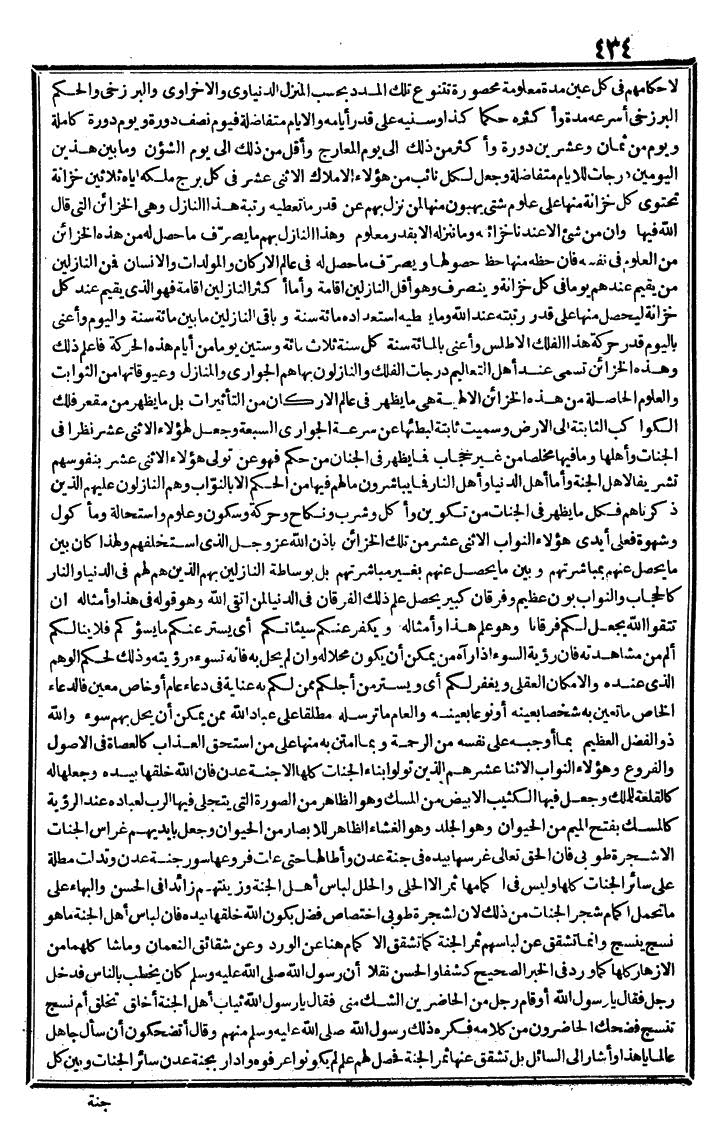 ٤٣٤
لاحكامهم فى كل عين مدة معلومة محصورة تتنوع تلك المدد بحسب المنزل الدنياوى والاخراوى والبرزخى والحكم
البرزخى أسرعه مدة وأكثره حكما كذا وسنيه على قدر أيامه والايام متفاضلة فيوم نصف دورة ويوم دورة كاملة
ويوم من ثمان وعشرين دورة وأكثر من ذلك الى يوم المعارج وأقل من ذلك الى يوم الشؤن ومابين هذين
اليومين درجات للايام متفاضلة وجعل لكل نائب من هؤلاء الاملاك الاثنى عشر فى كل برج ملكه اياه ثلاثين خزانة
تحتوى كل خزانة منها على علوم شتى يهبون منها لمن نزل بهم عن قدر ماتعطيه رتبة هذا النازل وهى الخزائن التى قال
الله فيها وان من شئ الاعندنا خزائنه وماننزله الابقدر معلوم وهذا النازل بهم مايصرّف ماحصل له من هذه الخزائن
من العلوم فى نفسه فان حظه منها حظ حصولها ويصرّف ماحصل له فى عالم الاركان والمولدات والانسان فمن النازلين
من يقيم عندهم يوما فى كل خزانة وينصرف وهو أقل النازلين اقامة وأماأكثر النازلين اقامة فهو الذى يقيم عند كل
خزانة ليحصل منها على قدر رتبته عند الله ومايعطيه استعداده مائة سنة وباقى النازلين مابين مائة سنة واليوم وأعنى
باليوم قدر حركة هذا الفلك الاطلس وأعنى بالمائة سنة كل سنة ثلاث مائة وستين يوما من أيام هذه الحركة فاعلم ذلك
وهذه الخزائن تسمى عند أهل التعاليم درجات الفلك والنازلون بها هم الجوارى والمنازل وعيوقاتها من الثوابت
والعلوم الحاصلة من هذه الخزائن الالهية هى مايظهر فى عالم الاركان من التأثيرات بل مايظهر من مقعر فلك
الكواكب الثابتة الى الارض وسميت ثابتة لبطئها عن سرعة الجوارى السبعة وجعل لهؤلاء الاثنى عشر نظرا فى
الجنات وأهلها ومافيها مخلصا من غير حجاب فمايظهر فى الجنان من حكم فهو عن تولى هؤلاء الاثنى عشر بنفوسهم
تشريفا لاهل الجنة وأماأهل الدنيا وأهل النار فمايباشرون مالهم فيها من الحكم الابالنوّاب وهم النازلون عليهم الذين
ذكرناهم فكل مايظهر فى الجنات من تكوين وأكل وشرب ونكاح وحركة وسكون وعلوم واستحالة ومأكول
وشهوة فعلى أيدى هؤلاء النواب الاثنى عشر من تلك الخزائن باذن الله عز وجل الذى استخلفهم ولهذا كان بين
مايحصل عنهم بمباشرتهم وبين مايحصل عنهم بغير مباشرتهم بل بوساطة النازلين بهم الذين هم لهم فى الدنيا والنار
كالحجاب والنواب بون عظيم وفرقان كبير يحصل علم ذلك الفرقان فى الدنيا لمن اتقى الله وهو قوله فى هذا وأمثاله ان
تتقوا الله يجعل لكم فرقانا وهو علم هذا وأمثاله ويكفر عنكم سيئاتكم أى يستر عنكم مايسؤكم فلاينالكم
ألم من مشاهدته فان رؤية السوء اذا رآه من يمكن أن يكون محلا له وان لم يحل به فانه تسوءه رؤيته وذلك لحكم الوهم
الذى عنده والامكان العقلى ويغفر لكم أى ويستر من أجلكم ممن لكم به عناية فى دعاء عام أوخاص معين فالدعاء
الخاص ماتعين به شخصا بعينه أونوعا بعينه والعام ماترسله مطلقا على عباد الله ممن يمكن أن يحل بهم سوء والله
ذوالفضل العظيم بماأوجبه على نفسه من الرحمة وبماامتن به منها على من استحق العذاب كالعصاة فى الاصول
والفروع وهؤلاء النواب الاثنا عشر هم الذين تولوا بناء الجنات كلها الاجنة عدن فان الله خلقها بيده وجعلها له
كالقلعة للملك وجعل فيها الكثيب الابيض من المسك وهو الظاهر من الصورة التى يتجلى فيها الرب لعباده عند الرؤية
كالمسك بفتح الميم من الحيوان وهو الجلد وهو الغشاء الظاهر للابصار من الحيوان وجعل بايديهم غراس الجنات
الاشجرة طوبى فان الحق تعالى غرسها بيده فى جنة عدن وأطالها حتى علت فروعها سور جنة عدن وتدلت مطلة
على سائر الجنات كلها وليس فى اكمامها ثمر الاالحلى والحلل لباس أهل الجنة وزينتهم زائدا فى الحسن والبهاء على
ماتحمل اكمام شجر الجنات من ذلك لان لشجرة طوبى اختصاص فضل بكون الله خلقها بيده فان لباس أهل الجنة ماهو
نسج ينسج وانماتشقق عن لباسهم ثمر الجنة كماتشقق الاكمام هنا عن الورد وعن شقائق النعمان وماشاكلهما من
الازهار كلها كماورد فى الخبر الصحيح كشفا والحسن نقلا أن رسول الله صلى الله عليه وسلم كان يخطب بالناس فدخل
رجل فقال يارسول الله أوقام رجل من الحاضرين الشك منى فقال يارسول الله ثياب أهل الجنة أخلق تخلق أم نسج
تنسج فضحك الحاضرون من كلامه فكره ذلك رسول الله صلى الله عليه وسلم منهم وقال أتضحكون أن سأل جاهل
عالما ياهذا وأشار الى السائل بل تشقق عنها ثمر الجنة فحصل لهم علم لم يكونوا عرفوه وادار بجنة عدن سائر الجنات وبين كل
جنة